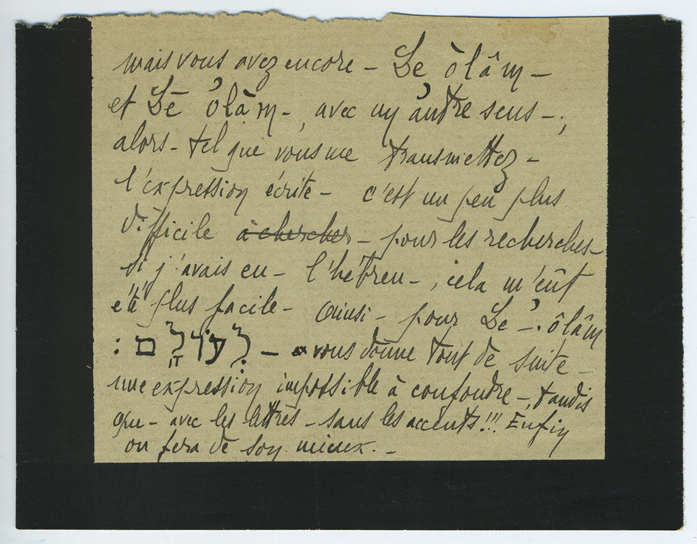 mais vous avez encore – Le ôlâm –
et Lē ʾôlâm –, avec un autre sens –;
alors – tel que vous me transmettez –
l'expression écrite – c'est un peu plus
difficile à chercher – pour les recherches –
si j'avais eu – l'hébreu –, cela m'eût
été plus facile – ainsi – pour Le –. ôlâm
לְעוֹלָם : – vous donne tout de suite –
une expression impossible à confondre –, tandis
que – avec les lettres – sans les accents!!! Enfin
on fera de son mieux. –